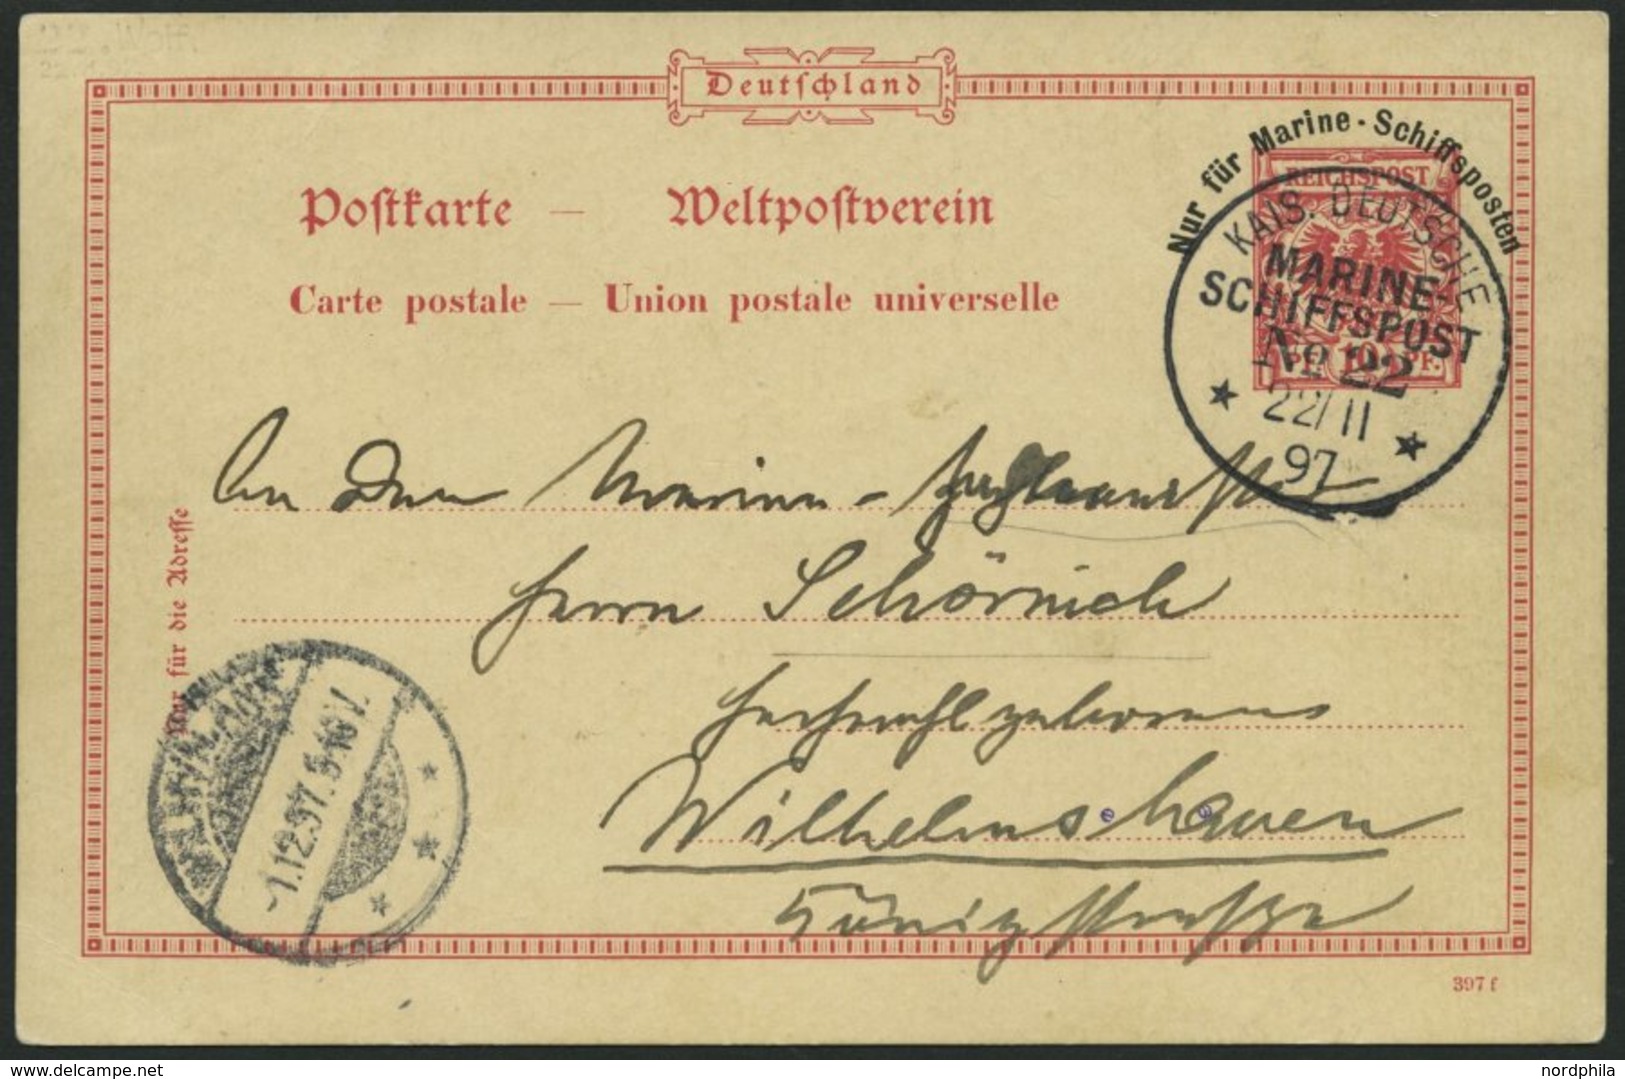 Deutschland
Nur für Marine-Schiffsposten
REICHSPOST
10 PF.
KAIS. DEUTSCHE
MARINE-
SCHIFFSPOST
No 22
22/11
97
Postkarte — Weltpostverein
Carte postale — Union postale universelle
Nur für die Adresse
An den Marine-
Herrn Schörnich
Wilhelmshaven
Königstrasse
-1.12.97. 9-10 V.
397 f
nordphila